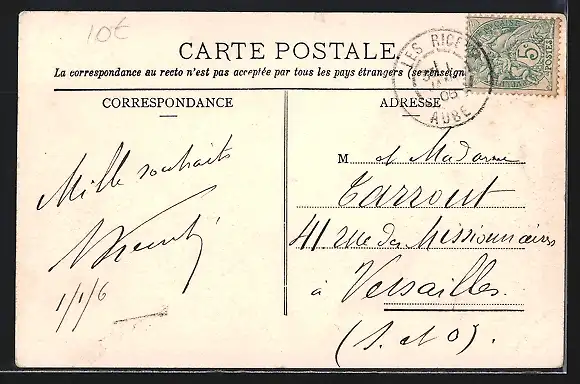 10€
CARTE POSTALE
La correspondance au recto n'est pas acceptée par tous les pays étrangers (se renseign
CORRESPONDANCE
ADRESSE
LES RICE
05
AUBE
5c
POSTES
Mille souhaits
1/1/6
M et Madame
Tarrout
41 rue des Missionnaires
à Versailles
(S. et O).